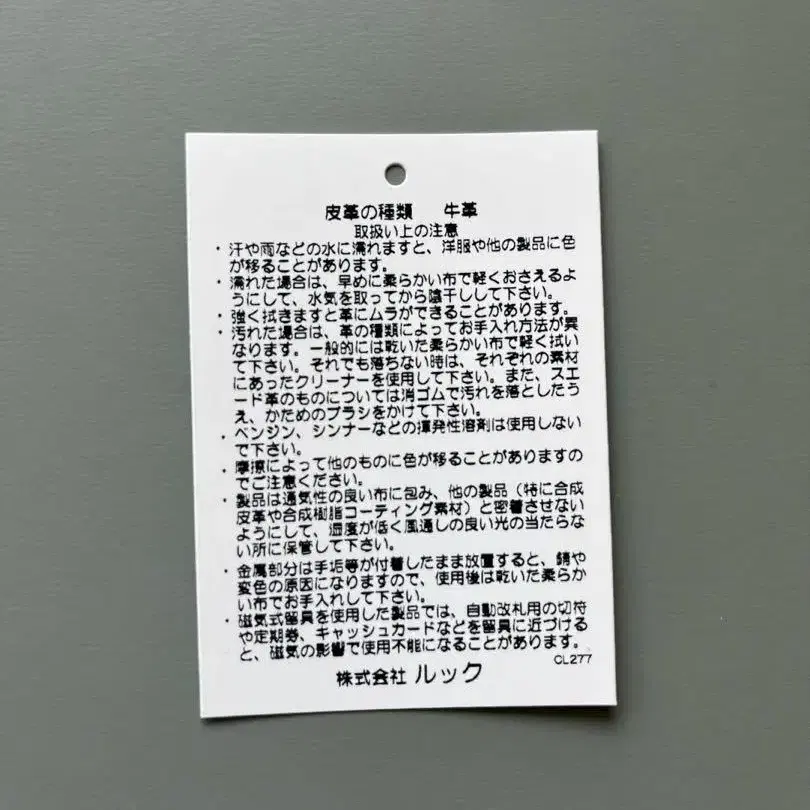 皮革の種類　牛革
取扱い上の注意
・汗や雨などの水に濡れますと、洋服や他の製品に色
が移ることがあります。
・濡れた場合は、早めに柔らかい布で軽くおさえるよ
うにして、水気を取ってから陰干しして下さい。
・強く拭きますと革にムラができることがあります。
・汚れた場合は、革の種類によってお手入れ方法が異
なります。一般的には乾いた柔らかい布で軽く拭い
て下さい。それでも落ちない時は、それぞれの素材
にあったクリーナーを使用して下さい。また、スエ
ード革のものについては消ゴムで汚れを落としたう
え、かためのブラシをかけて下さい。
・ベンジン、シンナーなどの揮発性溶剤は使用しない
で下さい。
・摩擦によって他のものに色が移ることがありますの
でご注意ください。
・製品は通気性の良い布に包み、他の製品（特に合成
皮革や合成樹脂コーティング素材）と密着させない
ようにして、湿度が低く風通しの良い光の当たらな
い所に保管して下さい。
・金属部分は手垢等が付着したまま放置すると、錆や
変色の原因になりますので、使用後は乾いた柔らか
い布でお手入れして下さい。
・磁気式留具を使用した製品では、自動改札用の切符
や定期券、キャッシュカードなどを留具に近づける
と、磁気の影響で使用不能になることがあります。
CL277
株式会社 ルック